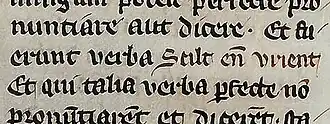 ningam potest perfecte pro
nuntiare aut dicere · Et fu
erunt verba Scilt en̄ vrient
Et qui talia verba ꝑfecte nō
pronūtiarent et dicerent · sta